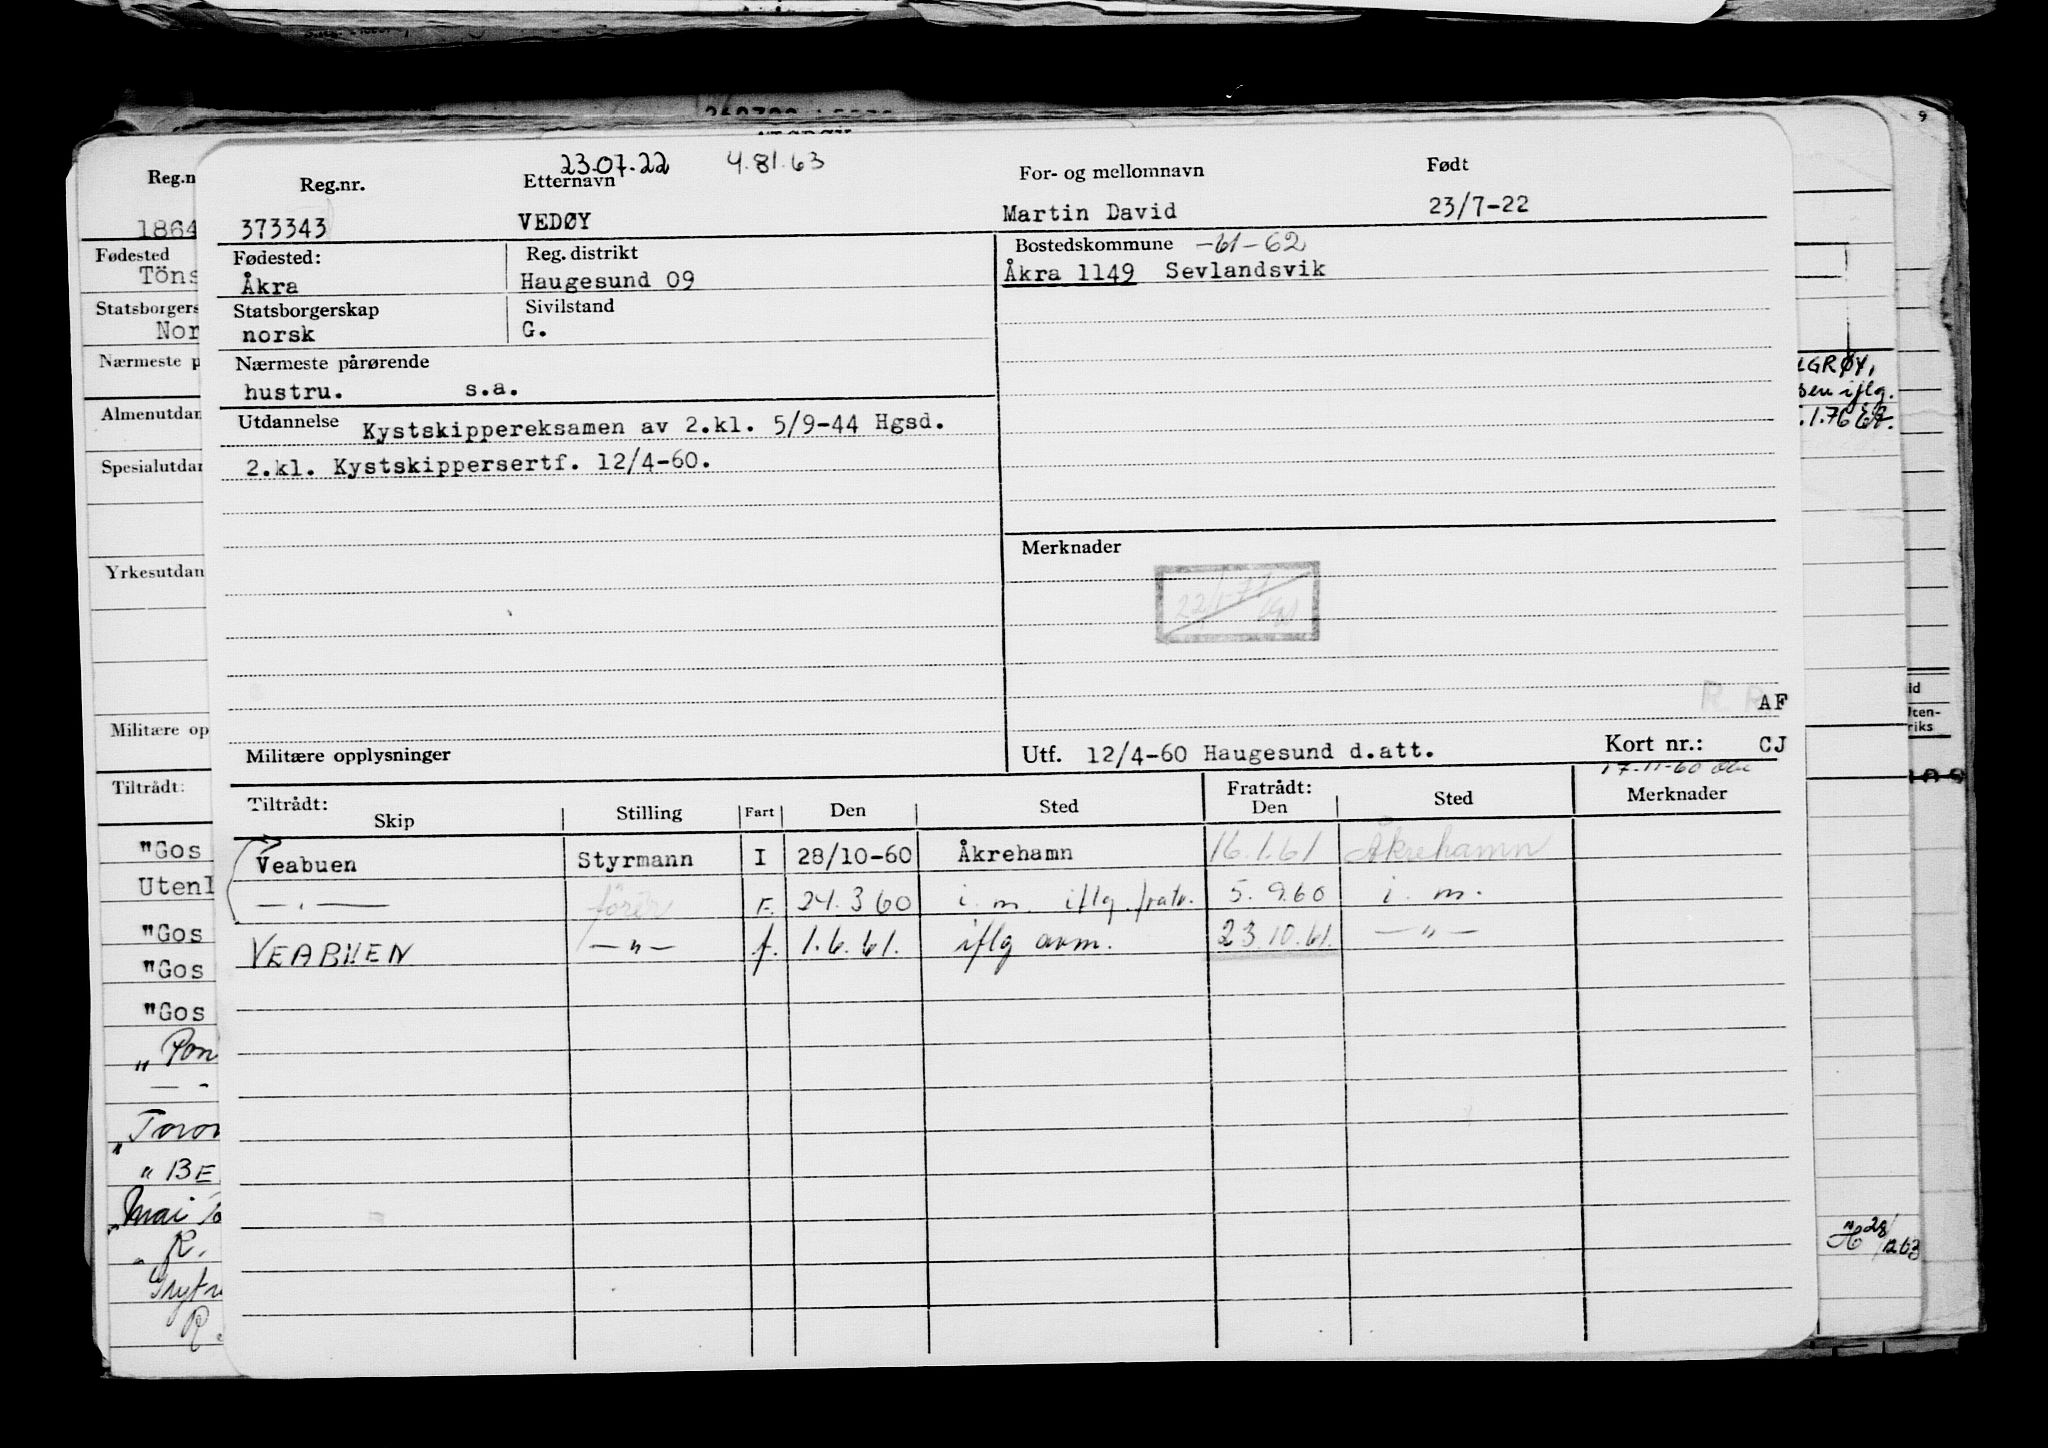 23.07.22 4.81.63
Reg.nr. Etternavn For- og mellomnavn Født
373343 VEDØY Martin David 23/7-22
Fødested: Reg. distrikt Bostedskommune -61-62
Åkra Haugesund 09 Åkra 1149 Sevlandsvik
Statsborgerskap Sivilstand
norsk G.
Nærmeste pårørende
hustru. s.a.
Utdannelse Kystskippereksamen av 2.kl. 5/9-44 Hgsd.
2.kl. Kystskippersertf. 12/4-60.
Merknader
R. R AF
Militære opplysninger Utf. 12/4-60 Haugesund d.att. Kort nr.: CJ
17.11-60
Tiltrådt: Fratrådt:
Skip Stilling Fart Den Sted Den Sted Merknader
Veabuen Styrmann I 28/10-60 Åkrehamn 16.1.61 Åkrehamn
— " — fører F. 24.3 60 i. m. iflg. fratr. 5.9.60 i. m.
VEABUEN — " — f. 1.6.61. iflg avm. 23.10.61. — " —
Reg.n
1864
Fødested
Töns
Statsborgers
Nor
Nærmeste p
Almenutdan
Spesialutdan
Yrkesutdan
Militære op
Tiltrådt:
"Gos
Utenl
"Gos
"Gos
"Gos
"BE
R.
R
LGRØY,
iflg.
1.76
9
Uten-
riks